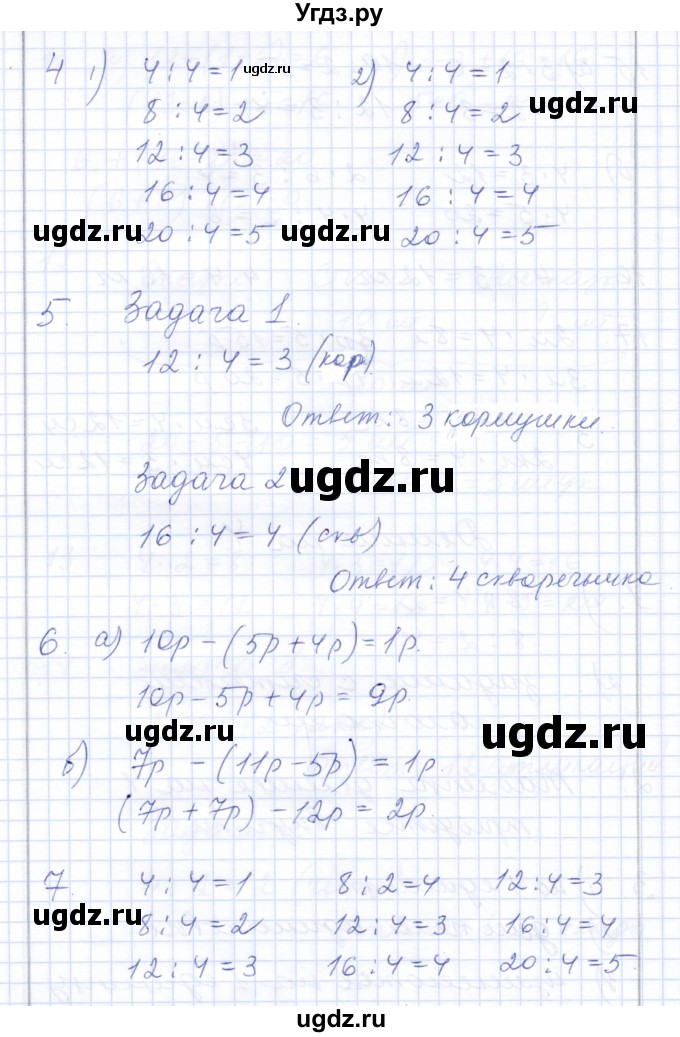 Угдз.ру
4 1) 4:4=1 2) 4:4=1
ugdz.ru
8:4=2 8:4=2
ugdz.ru
12:4=3 12:4=3
16:4=4 16:4=4
ugdz.ru ugdz.ru
20:4=5 20:4=5
5. Задача 1.
12:4=3 (кор).
Ответ: 3 кормушки.
Задача 2
ugdz.ru
16:4=4 (скв)
Ответ: 4 скворечника.
6. а) 10р-(5р+4р)=1р.
10р-5р+4р=9р.
ugdz.ru ugdz.ru
б) 7р -(11р-5р)=1р.
(7р+7р)-12р=2р.
7. 4:4=1 8:2=4 12:4=3
ugdz.ru
8:4=2 12:4=3 16:4=4
12:4=3 16:4=4 20:4=5
ugdz.ru